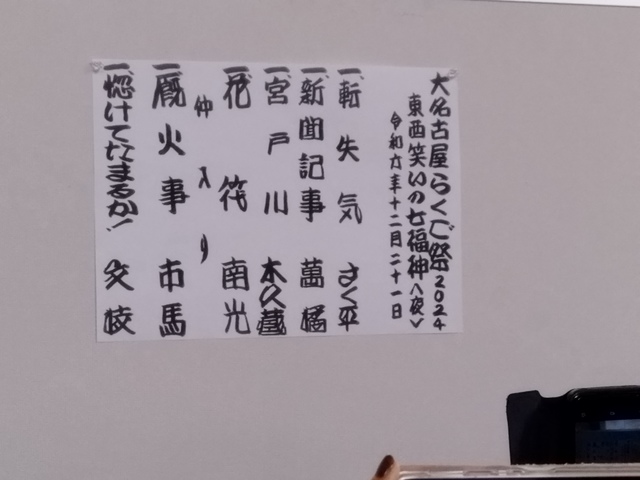 大名古屋らくご祭2024
東西笑いの七福神〈夜〉
令和六年十二月二十一日
一、転失気 さく平
一、新聞記事 萬橘
一、宮戸川 木久蔵
一、花筏 南光
仲入り
一、厩火事 市馬
一、惚けてたまるか! 文枝